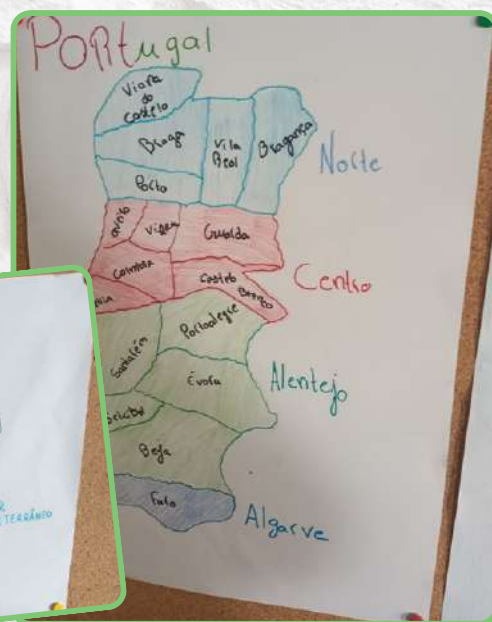 Portugal
Viana
do
Castelo
Braga
Vila
Real
Bragança
Norte
Porto
Aveiro
Viseu
Guarda
Coimbra
Castelo
Branco
Centro
Portoalegre
Santarém
Évora
Alentejo
Setúbal
Beja
Faro
Algarve